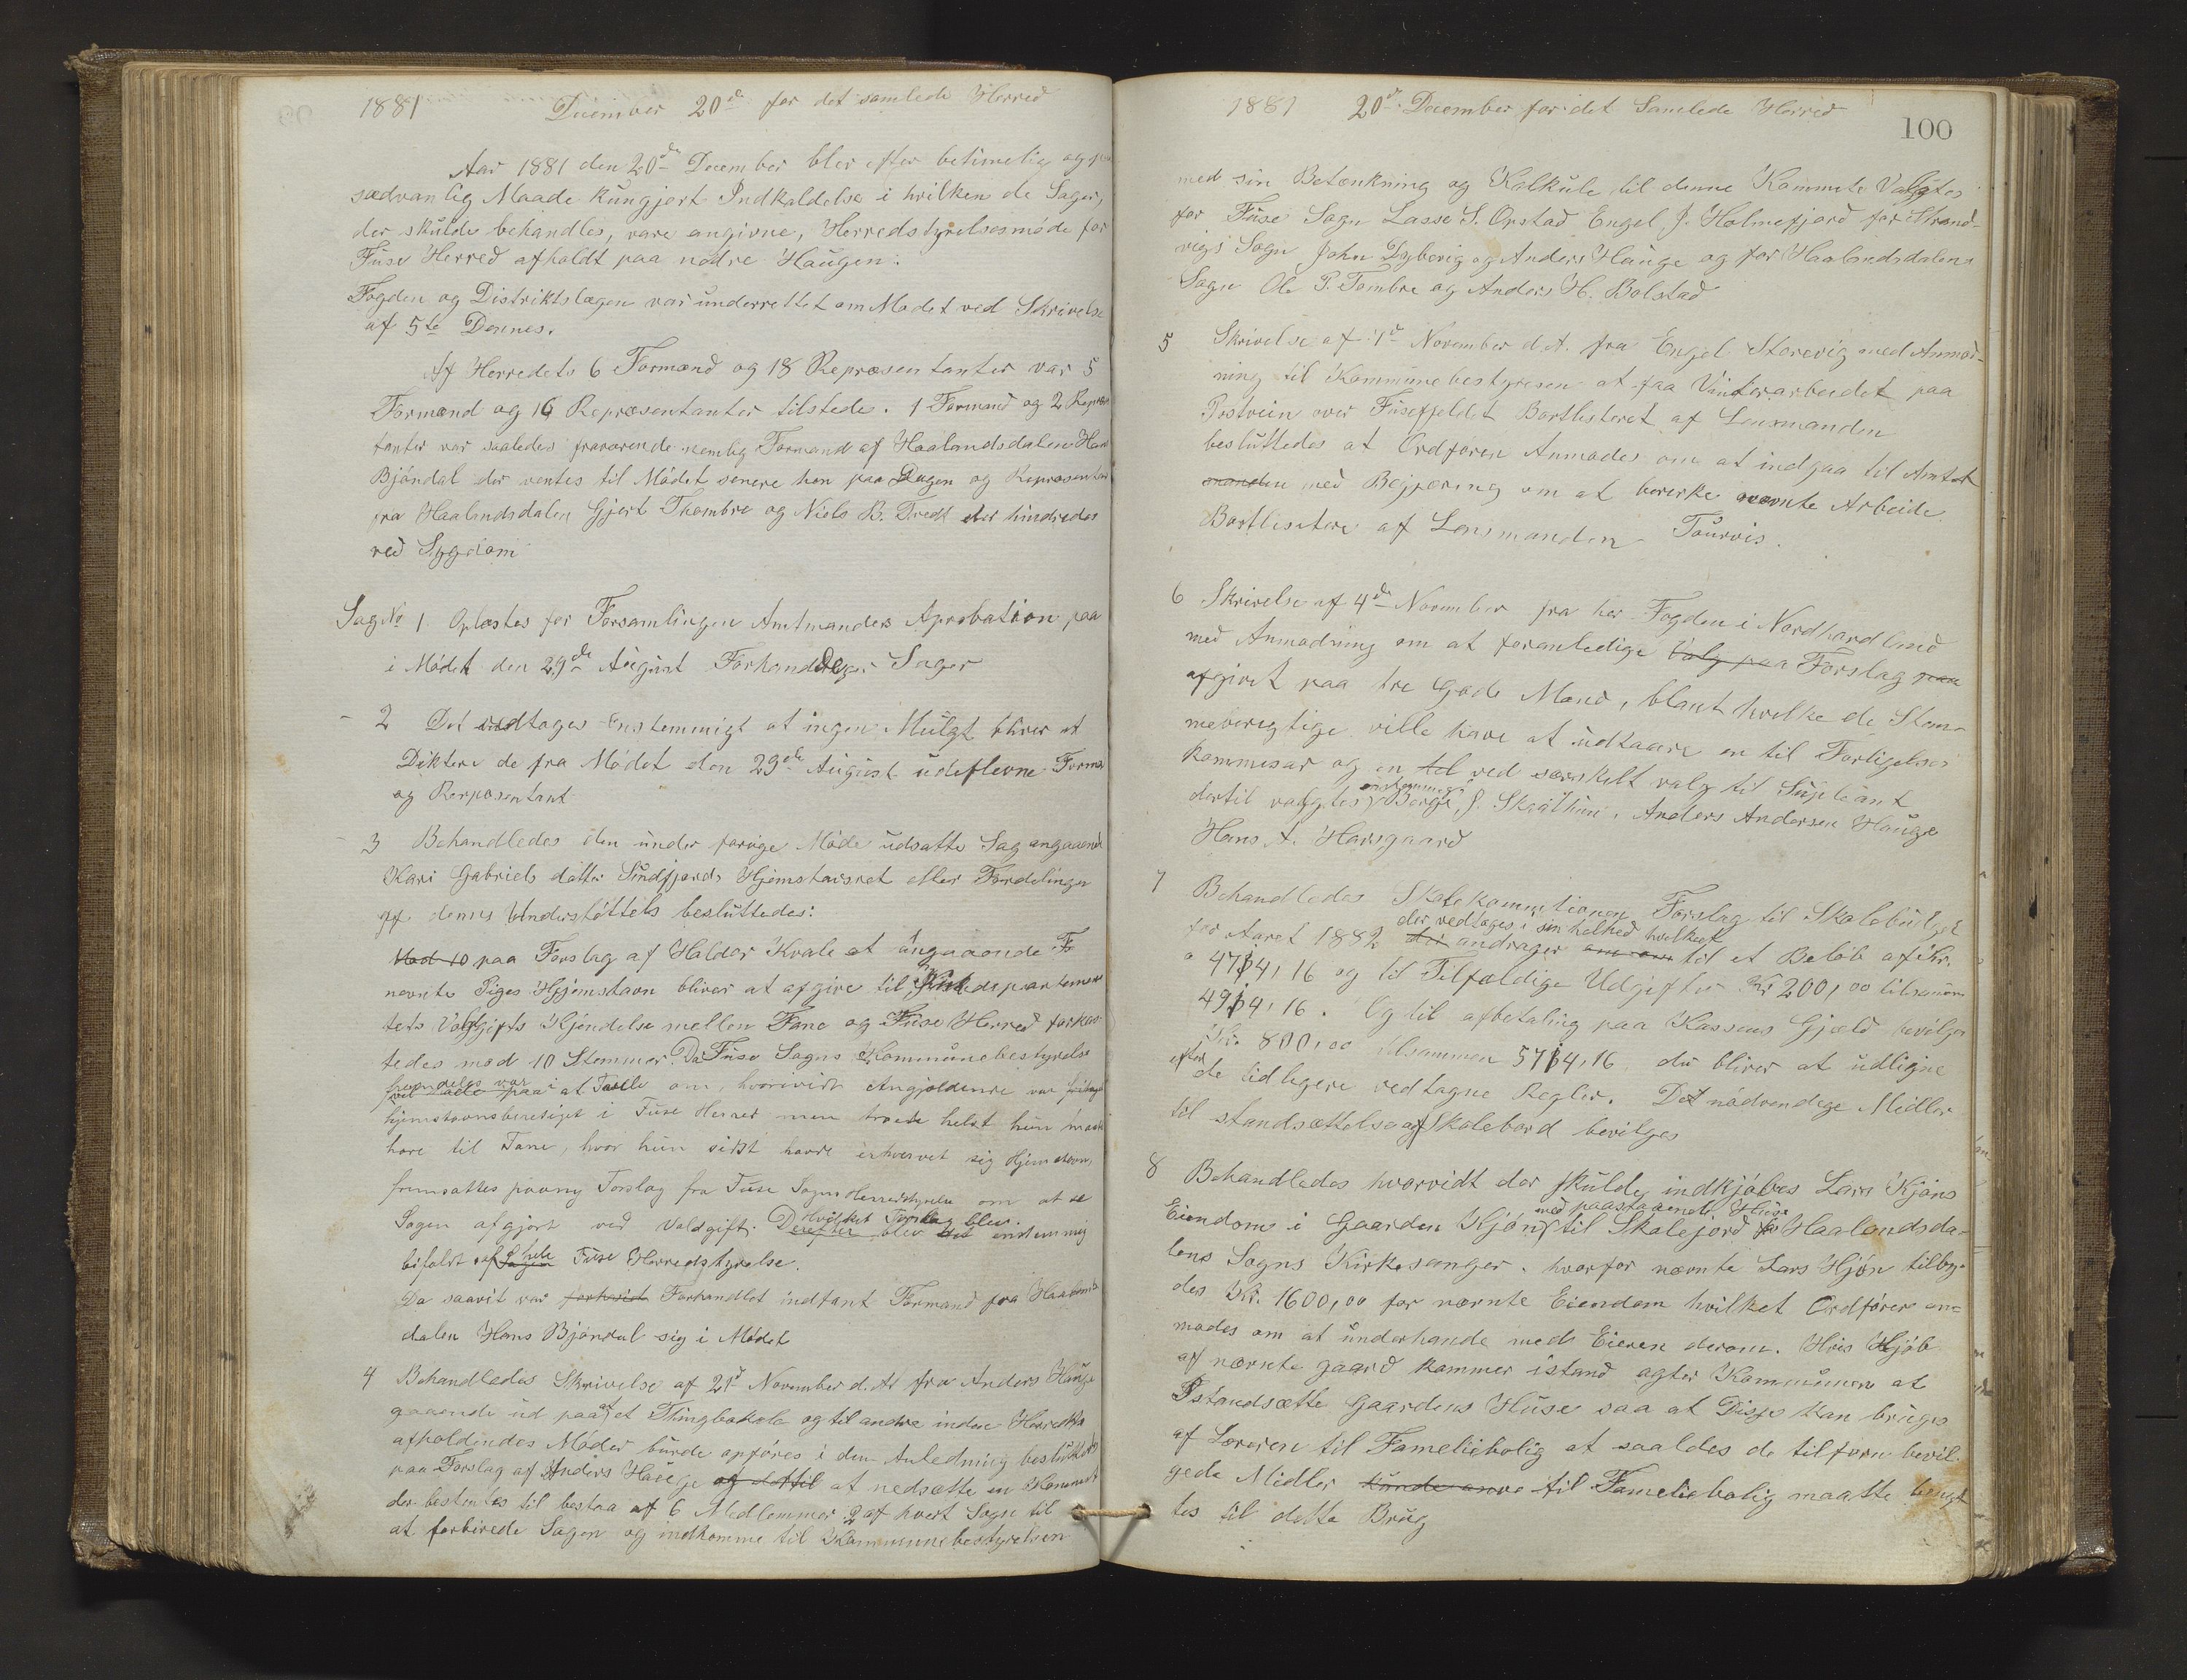 1881 December 20de for det samlede Herred
Aar 1881 den 20de December blev efter betimelig og paa
sædvanlig Maade kungjort Indkaldelse i hvilken de Sager,
der skulde behandles, vare angivne, Herredstyrelsesmøde for
Fuse Herred afholdt paa nødre Haugen:
Fogden og Distriktslægen var underrettet om Mødet ved Skrivelse
af 5te Dennes.
Af Herredets 6 Formænd og 18 Repræsentanter var 5
Formænd og 16 Repræsentanter tilstede. 1 Formand og 2 Repræsen
tanter var saaledes fraværende nemlig Formand af Haalandsdalen Hans
Bjøndal der ventes til Mødet senere hen paa Dagen og Repræsentant
fra Haalandsdalen Gjert Thombre og Niels B. Tredt der hindredes
ved Sygdom
Sag No 1 Oplæstes for Forsamlingen Amtmandens Aprobation paa
i Mødet den 29de August Forhandlede Sager
- 2 Det vedtages Enstemmigt at ingen Mulgt bliver at
Diktere de fra Mødet den 29de August udeblevne Formænd
og Repræsentant
- 3 Behandledes den under forrige Møde udsatte Sag angaaende
Kari Gabriels datter Sundfjords Hjemstavsret eller Fordelingen
af dennes Understøttels besluttedes:
Mod 10 paa Forslag af Haldor Kvale at angaaende
nevnte Piges Hjemstavn bliver at afgive til Kirkedepartemen
tets Voldgifts Kjendelse mellem Fane og Fuse Herred forkas
tedes mod 10 Stemmer. Da Fuse Sogns Kommunebestyrelse
om, hvorvidt Angjældende var
hjemstavnsberetiget i Fuse Herred men troede helst hun maatte
høre til Fane, hvor hun sidst havde erhvervet sig Hjemstavn,
fremsattes paany Forslag fra Fuse Sogns Herredstyrelse om at se
Sagen afgjort ved Voldgift. Hvilket Forslag blev Derefter blev det enstemmig
bifaldt af hele Fuse Herredstyrelse.
Da saavit var forhavid Forhandlet indfant Formand fra Haalands
dalen Hans Bjøndal sig i Mødet
4 Behandledes Skrivelse af 21de November d.A. fra Anders Hauge
gaaende ud paa at et Thinglokale og til andre inden Herredet
afholdendes Møder burde opføres i den Anledning besluttedes
paa Forslag af Anders Hauge og dertil at nedsætte en Kommite
der bestemtes til bestaa af 6 Medlemmer 2 af hvert Sogn til
at forberede Sagen og indkomme til Kommunebestyrelsen
1881 20de December for det Samlede Herred
100
med sin Betænkning og Kalkule til denne Kommite Valgtes
for Fuse Sogn Lasse S. Opstad Engel J. Holmefjord for Strand-
vigs Sogn John Dybvig og Anders Hauge og for Haalandsdalens
Sogn Ole P. Tombre og Anders H. Bolstad
5 Skrivelse af 1de November d.A. fra Engel Storevig med Anmod-
ning til Kommunebestyresen at faa Vinterarbeidet paa
Postveien over Fusefjeldet Bortlisteret af Lensmanden
besluttedes at Ordføren Anmodes om at indgaa til Amtet
manden med Begjæring om at bevirke nævnte Arbeide
Bortlisitere af Lensmanden Tourvis.
6 Skrivelse af 4de November fra her Fogden i Nordhordland
med Anmodning om at foranledige Valg paa Forslag paa
afgivet paa tre Gode Mænd, blant hvilke de Stem-
meberegtige ville have at udkaare en til Forligelses
kommisær og en tel ved særskilt valg til Supleant
dertil valgtes enstemmig Børge J. Skaathun, Anders Andersen Hauge
Hans A. Havsgaard
7 Behandledes Skolekommitionen Forslag til Skolebudget
for Aaret 1882 der vedtages i sin helhed hvilket der andrager til et Beløb af Kr.
4714,16 og til Tilfældige Udgifter Kr 200,00 tilsammen
4914,16. Og til afbetaling paa Kassens Gjæld bevilges
Kr. 800,00 tilsammen 5714,16, der bliver at udligne
efter de tidligere vedtagne Regler. Det nødvendige Midler
til standsættelse af Skolebord bevilges
8 Behandledes hvorvidt der skulde indkjøbes Lars Kjøns
Eiendom i Gaarden Hjøn med paastaaende Huse til Skolejord for Haalandsda-
lens Sogns Kirkesanger. hvorfor nævnte Lars Hjøn tilby-
des Kr. 1600,00 for nævnte Eiendom hvilket Ordfører an-
modes om at underhandle med Eieren derom. Hvis Kjøb
af nævnte gaard kommer istand agter Kommunen at
Istandsætte Gaardens Huse saa at Disse kan bruges
af Læreren til Familiebolig at saaldes de tilforn bevil-
gede Midler kunde anve til Fameliebolig maatte benyt
tes til dette Brug